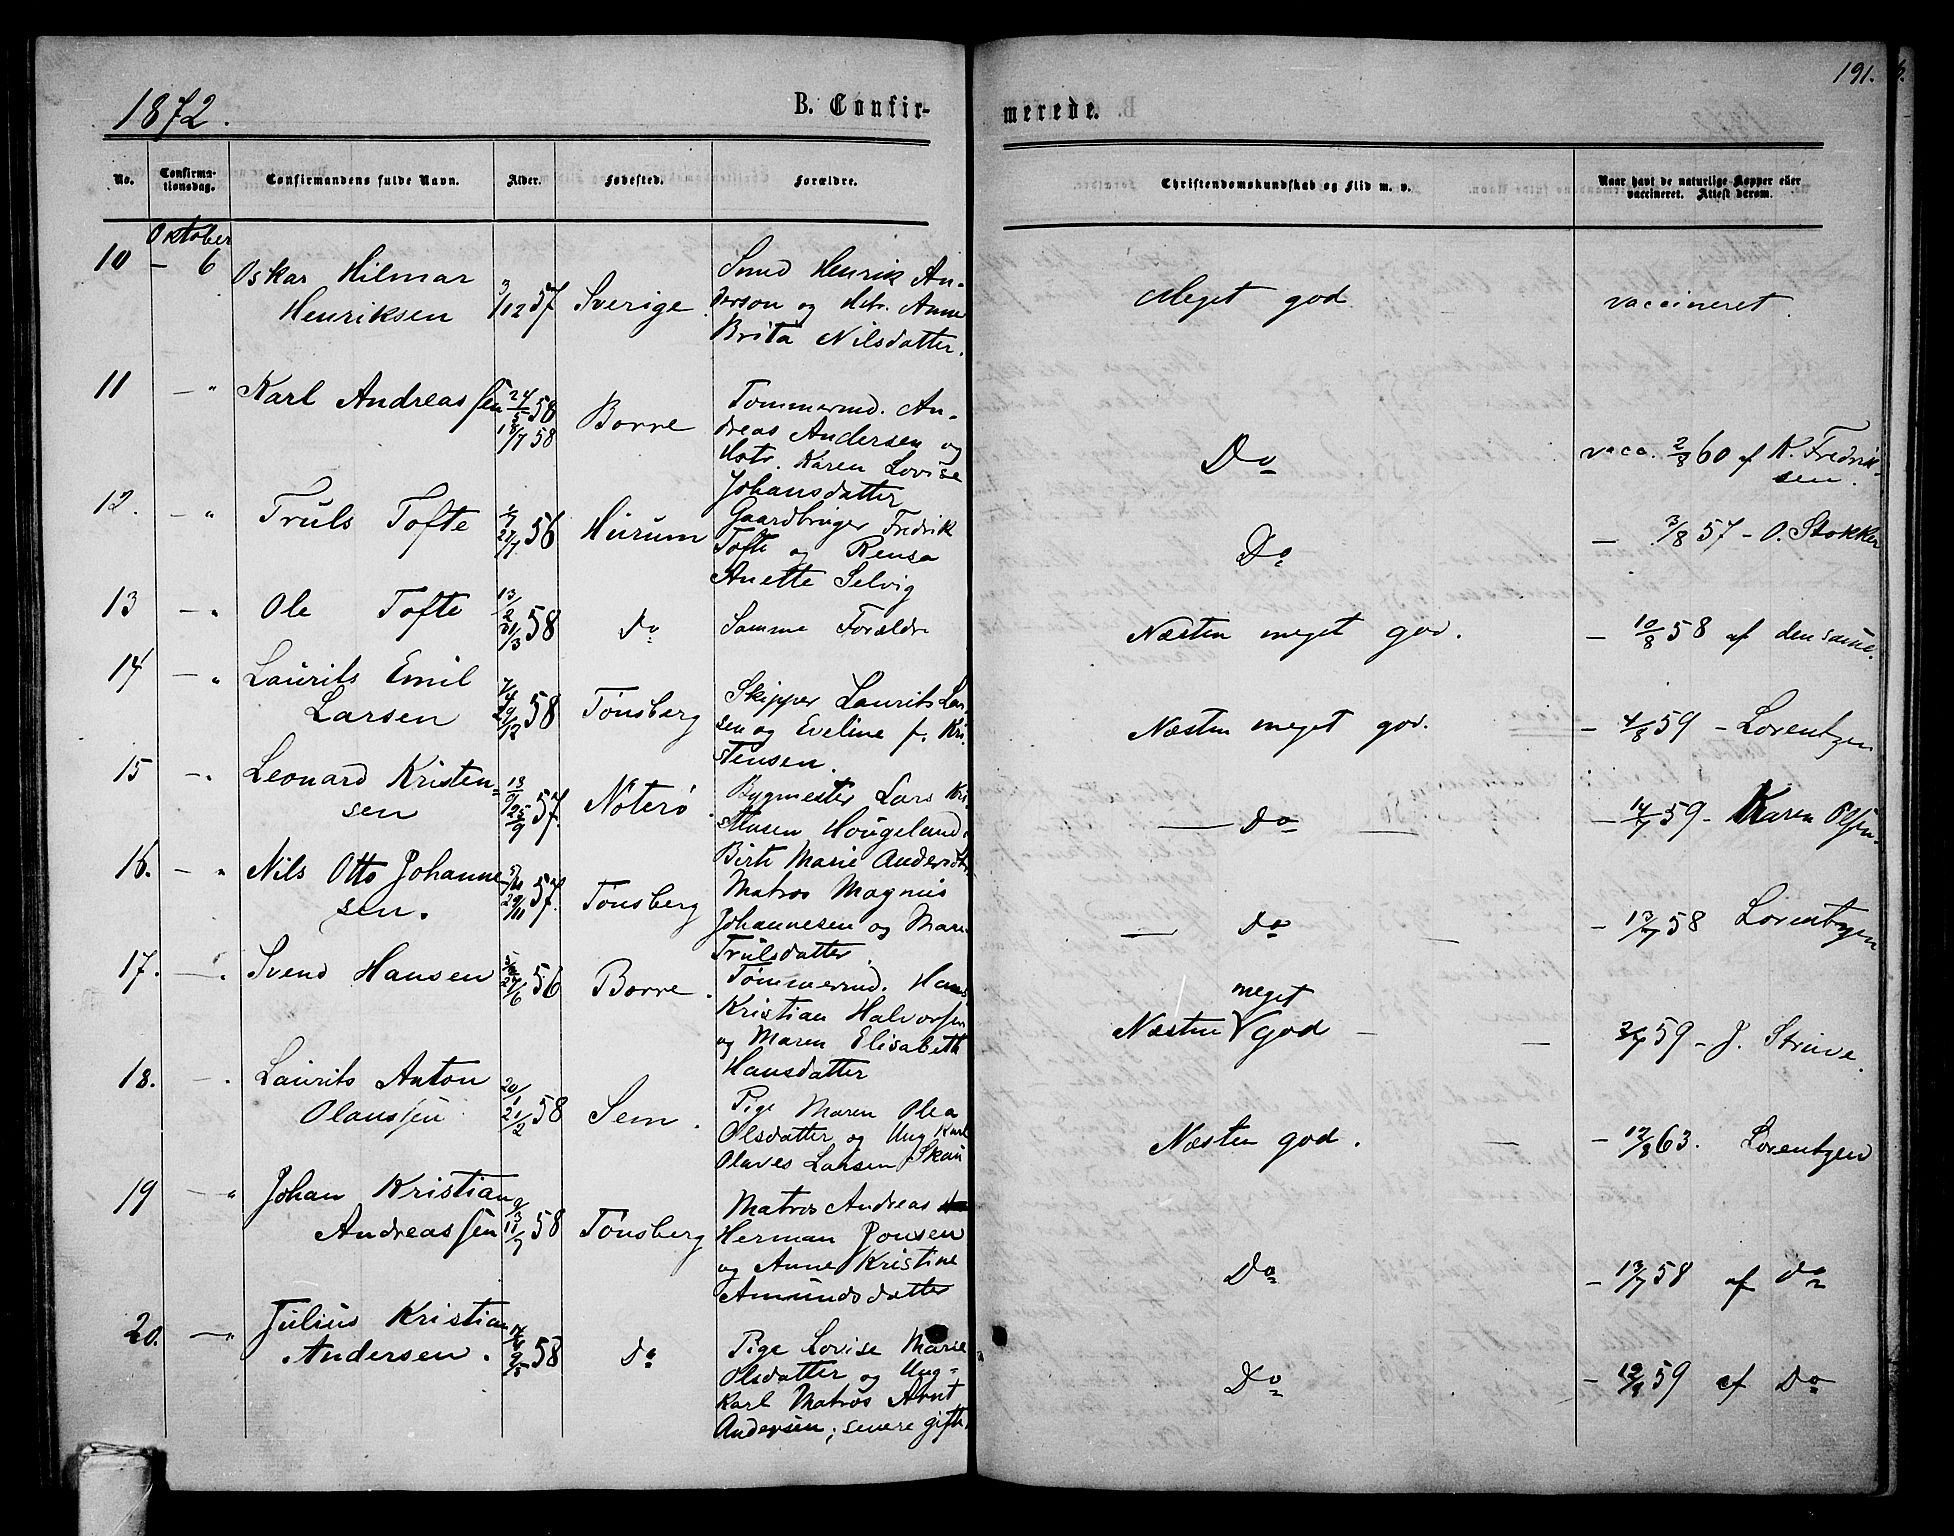 1872.
B. Confir-
merede.
191.
No.
Confirma-
tionsdag.
Confirmandens fulde Navn.
Alder.
Fødested.
Forældre.
Christendomskundskab og Flid m. v.
Naar havt de naturlige Kopper eller
vaccineret. Attest derom.
Oktober
10 – 6 Oskar Hilmar
Henriksen
3/12 57 Sverige.
Smed Henrik An-
derson og Anne
Brita Nilsdatter.
Meget god
vaccineret.
11 – " Karl Andreassen
24/5 58
18/7 58
Borre
Tømmermd. An-
dreas Andersen og
Karen Lovise
Johansdatter
Do
vacc. 2/8 60 af K. Fredrik-
sen.
12. – " Truls Tofte
27/7 56 Hurum
Gaardbruger Fredrik
Tofte og Rensa
Anette Selvig
Do
– 3/8 57 – O. Stokker
13 – " Ole Tofte
13/2
21/3 58
Do
Samme Forældr
Næsten meget god.
– 10/8 58 af den samme.
14 – " Laurits Emil
Larsen
58 Tønsberg
Skipper Laurits Lar-
sen og Eveline f. Kri-
stensen.
Næsten meget god.
– 4/8 59 – Lorentzen
15 – " Leonard Kristen-
sen
57. Nøterø.
Bygmester Lars Kri-
stensen Hougeland.
Birte Marie Andersdtr
— Do —
– 14/7 59 – Karen Olsen.
16. – " Nils Otto Johanne-
sen.
29/11 57. Tønsberg
Matros Magnus
Johannesen og Maren
Trulsdatter.
— Do —
– 13/7 58 Lorentzen
17. – " Svend Hansen
56 Borre.
Tømmermd. Hans
Kristian Halvorsen
og Maren Elisabeth
Hansdatter
meget
Næsten V god –
59 – J. Struve.
18. – " Laurits Anton
Olaussen
20/1
21/2 58
Sem.
Pige Maren Olea
Olsdatter og Ung Karl
Olaves Larsen Skau
Næsten god.
– 12/8 63. Lorentzen
19 – " Johan Kristian
Andreassen
58 Tønsberg
Matros Andreas
Herman Jonsen
og Anne Kristine
Amundsdatter
Do
– 13/7 58 af Do
20. – " Julius Kristian
Andersen.
58 Do
Pige Lovise Marie
Olsdatter og Ung-
karl Matros Arnt
Andersen; senere gifte.
Do
59 af Do